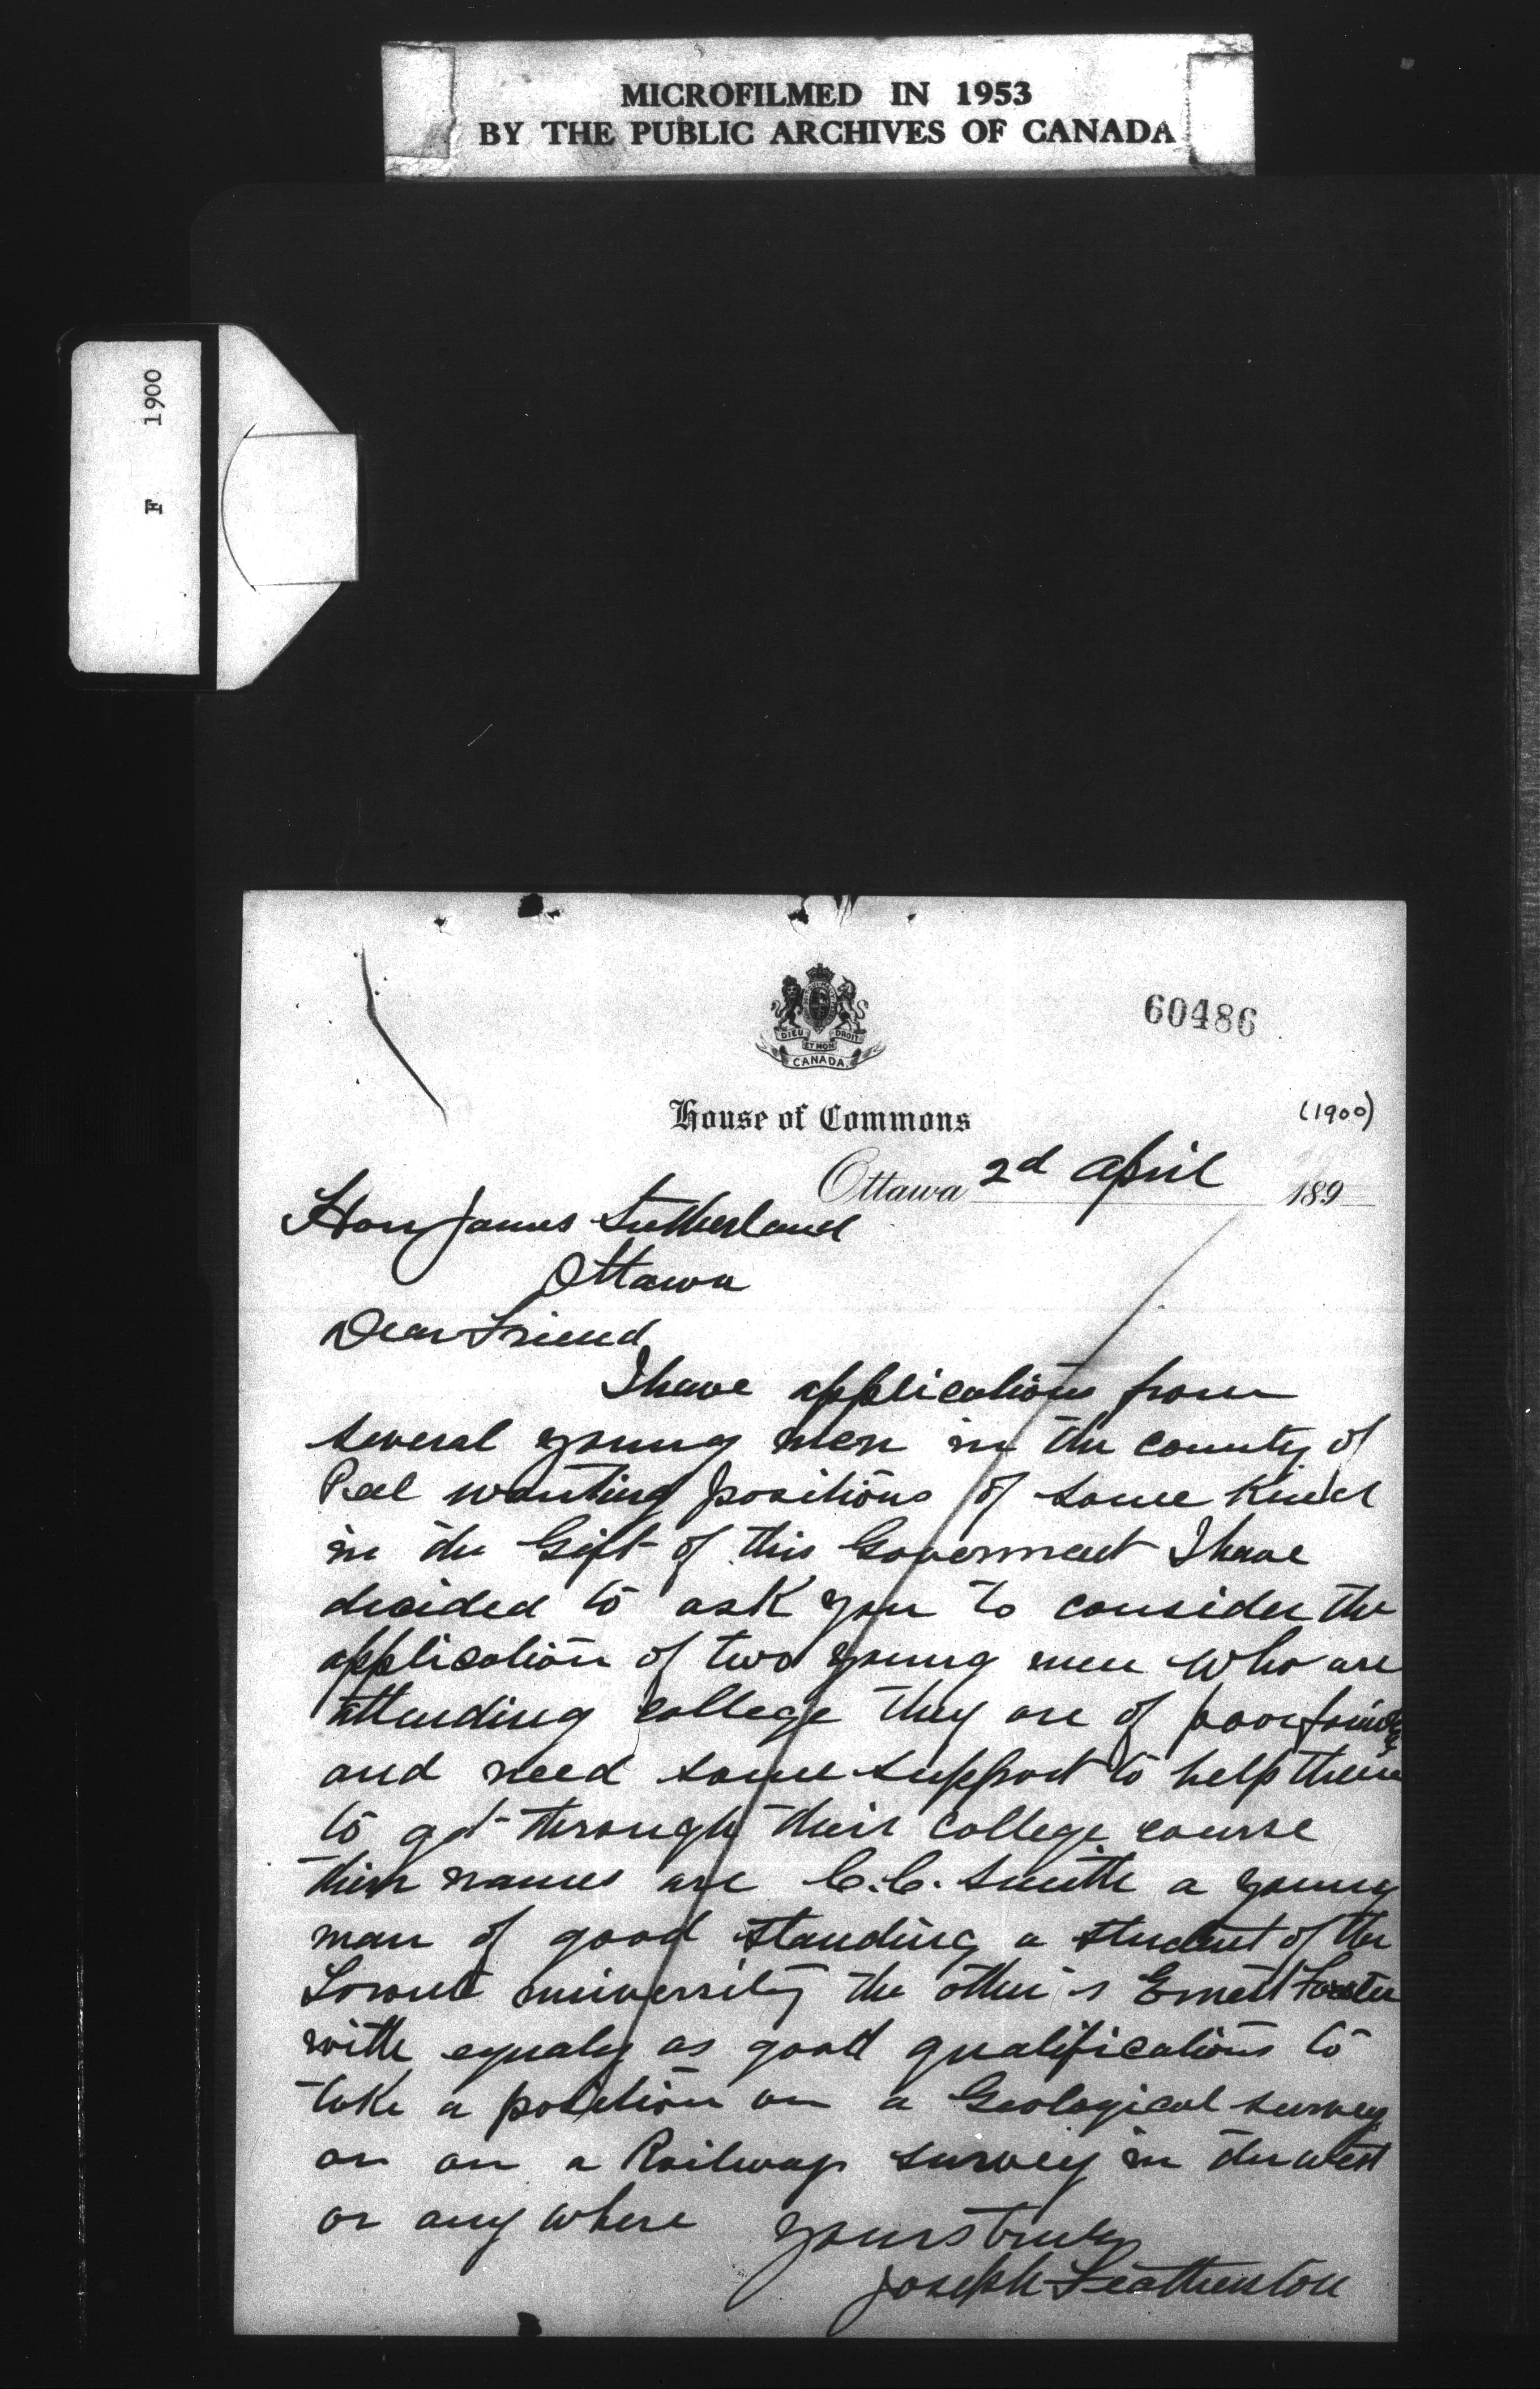 MICROFILMED IN 1953
BY THE PUBLIC ARCHIVES OF CANADA
F 1900
60486
DIEU ET MON DROIT
CANADA
House of Commons
(1900)
Ottawa 2d April 189
Hon James Sutherland
Ottawa
Dear Friend
I have applications from
several young men in the county of
Peel wanting positions of some kind
in the Gift of this Goverment I have
decided to ask you to consider the
application of two young men who are
attending college they are of poor
and need some support to help them
to get through their college course
their names are C.C. Smith a young
man of good standing a student of the
Toronto university the other is Ernest Foster
with equaly as good qualifications to
take a position on a Geological survey
or on a Railway survey in the west
or any where yours truly
Joseph Featherston